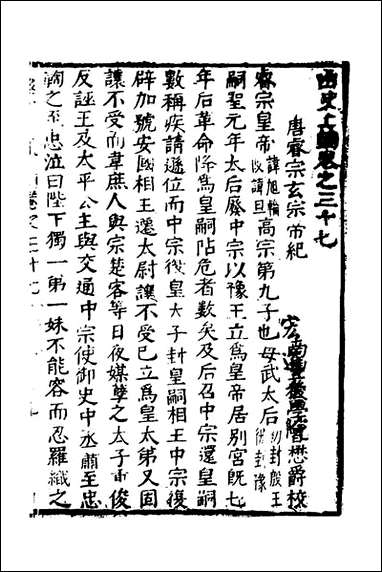 函史上編卷之三十七
唐睿宗玄宗帝紀
南豐後學懋爵校
睿宗皇帝諱旭輪改諱旦高宗第九子也母武太后初封殷王徙封豫
嗣聖元年太后廢中宗以豫王立爲皇帝居別宮旣七
年后革命降爲皇嗣阽危者數矣及后召中宗還皇嗣
數稱疾請遜位而中宗復皇大子封皇嗣相王中宗復
辟加號安國相王遷太尉讓不受已立爲皇太弟又固
讓不受而韋庶人與宗楚客等日夜媒孽之太子俊
反誣王及太平公主與交通中宗使御史中丞蕭至忠
鞫之至忠泣曰陛下獨一弟一妹不能容而忍羅織之